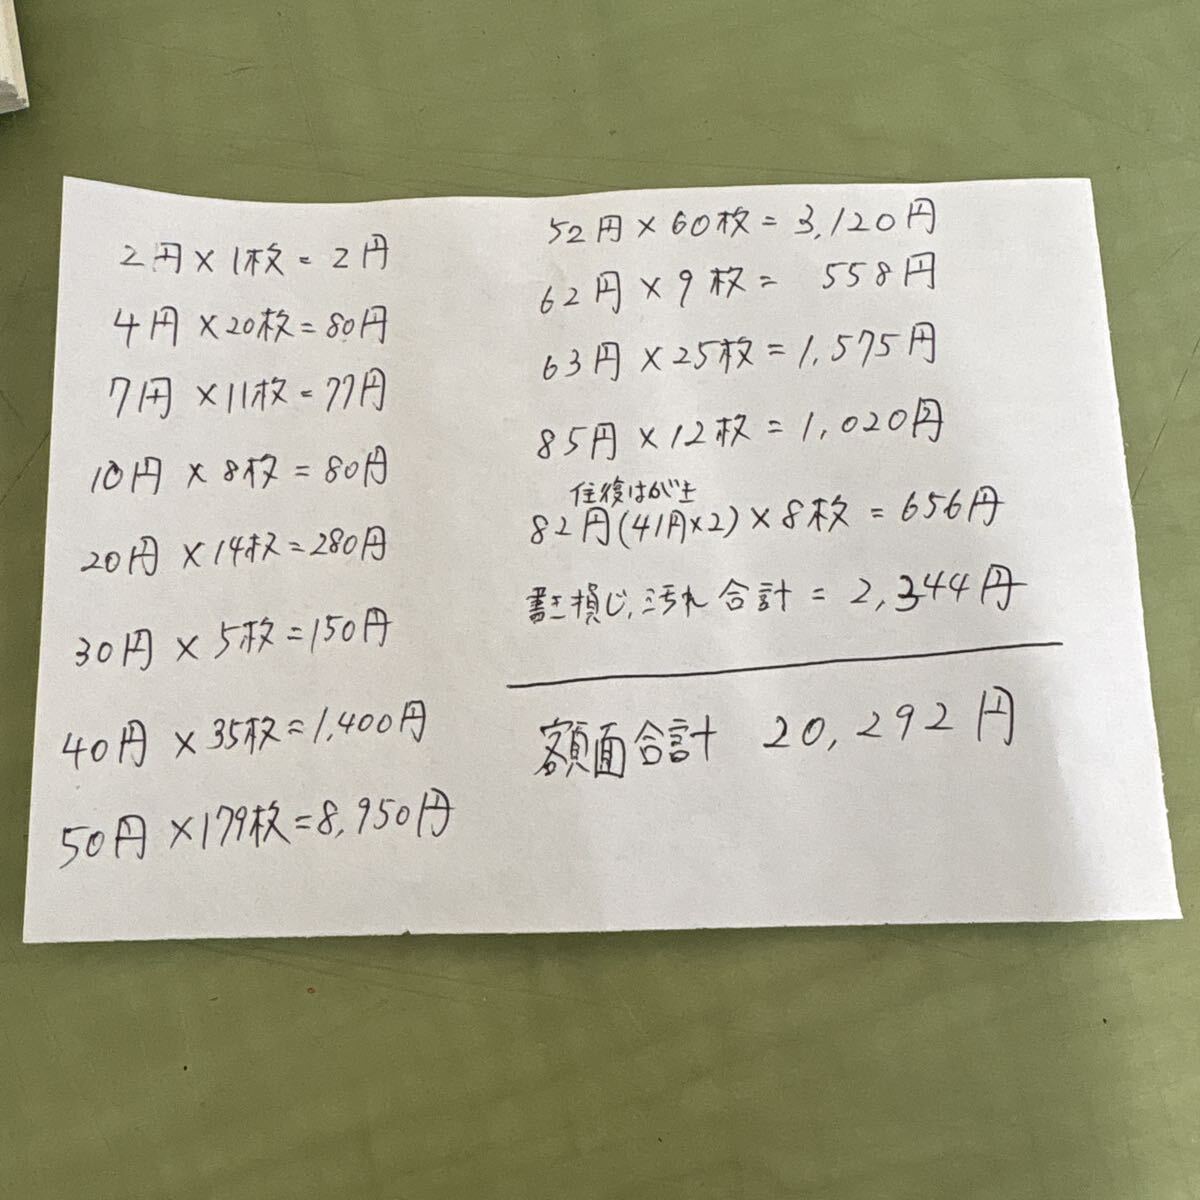 2円×1枚=2円
4円×20枚=80円
7円×11枚=77円
10円×8枚=80円
20円×14枚=280円
30円×5枚=150円
40円×35枚=1,400円
50円×179枚=8,950円
52円×60枚=3,120円
62円×9枚=558円
63円×25枚=1,575円
85円×12枚=1,020円
往復はがき
82円(41円×2)×8枚=656円
書き損じ,汚れ合計=2,344円
額面合計 20,292円